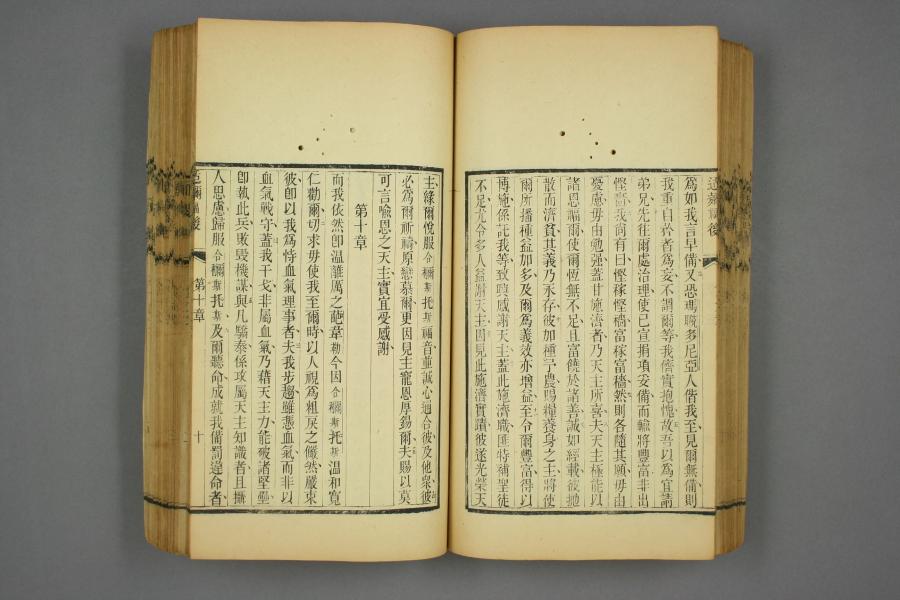 為如我言早備又恐瑪賕多尼亞人偕我至見爾無備則
我重自於者為妄不謂爾等我儕實抱愧故吾以為宜請
弟兄先往爾處治理使已宣捐項妥備而輸將豐富非出
慳嗇我尚有曰慳稼慳穡富稼富穡然則各隨其願毋由
憂慮毋由勉强蓋甘施濟者乃天主所喜夫天主極能以
諸恩福爾使爾恆無不足且富饒於諸善誠如經載彼拋
散而濟貧其義乃永存彼加種予農賜糧養身之主將使
爾所播種益加多及爾為義效亦增益至令爾豐富得以
博施係託我等致與感謝天主蓋此施濟職匪特補聖徒
不足尤令多人益謝天主因見此施濟實蹟彼遂光榮天
主緣爾悅服合穪斯托斯福音並誠心通合彼及他衆彼
必為爾祈禱原戀慕爾更因見主寵恩厚錫爾夫賜以莫
可言喻恩之天主實宜受感謝
第十章
而我依然即温誰厲之葩韋勒今因合穪斯托斯温和寬
仁勸爾切求毋使我至爾時以人視為粗戾之儼然嚴束
彼即以我為恃血氣理事者夫我步趨雖憑血氣而非以
血氣戰守蓋我干戈非屬血氣乃藉天主力能破諸堅壘
即執此兵敗毀機謀與凡驕泰係攻屬天主知識者且擄
人思慮歸服合穪斯托斯及爾聽命成就我備罰違命者
第十章
十